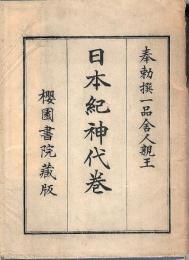 奉勅撰一品舎人親王
日本紀神代巻
櫻園書院蔵版